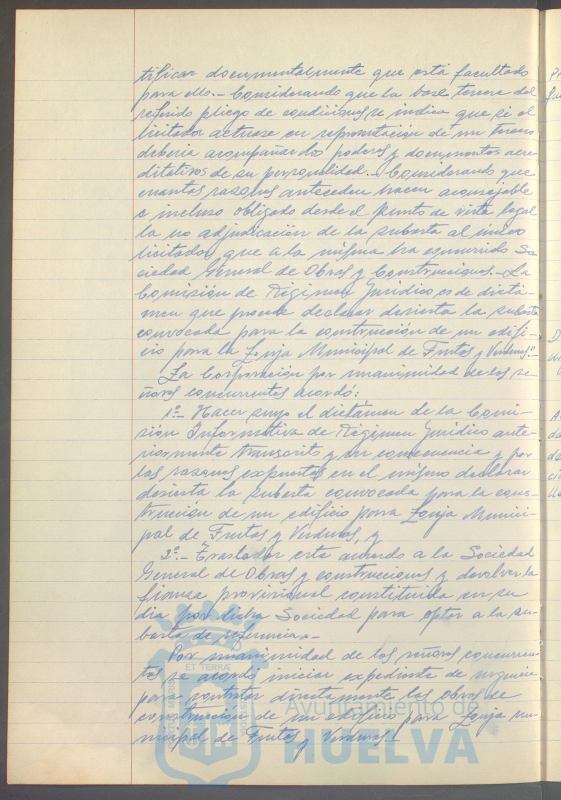 tificar documentalmente que está facultado
para ello.- Considerando que la base tercera del
referido pliego de condiciones se indica que si el
licitador actuase en representación de un tercero
debería acompañar los poderes y documentos acre-
ditativos de su personalidad.- Considerando que
cuantas razones anteceden hacen aconsejable
e incluso obligado desde el punto de vista legal
la no adjudicación de la subasta al único
licitador que a la misma ha concurrido So-
ciedad General de Obras y Construcciones.- La
Comisión de Régimen Jurídico es de dictá-
men que procede declarar desierta la subasta
convocada para la construcción de un edifi-
cio para la Lonja Municipal de Frutas y Verduras."
La Corporación por unanimidad de los se-
ñores concurrentes acordó:
1º.- Hacer suyo el dictámen de la Comi-
sión Informativa de Régimen Jurídico ante-
riormente transcrito y en consecuencia y por
las razones expuestas en el mismo declarar
desierta la subasta convocada para la cons-
trucción de un edificio para Lonja Munici-
pal de Frutas y Verduras, y
2º.- Trasladar este acuerdo a la Sociedad
General de Obras y construcciones y devolver la
fianza provisional constituida en su
día por dicha Sociedad para optar a la su-
basta de referencia.-
Por unanimidad de los señores concurren-
tes se acordó iniciar expediente de urgencia
para contratar directamente las obras de
construcción de un edificio para Lonja mu-
nicipal de Frutas y Verduras.-
Ayuntamiento de
HUELVA